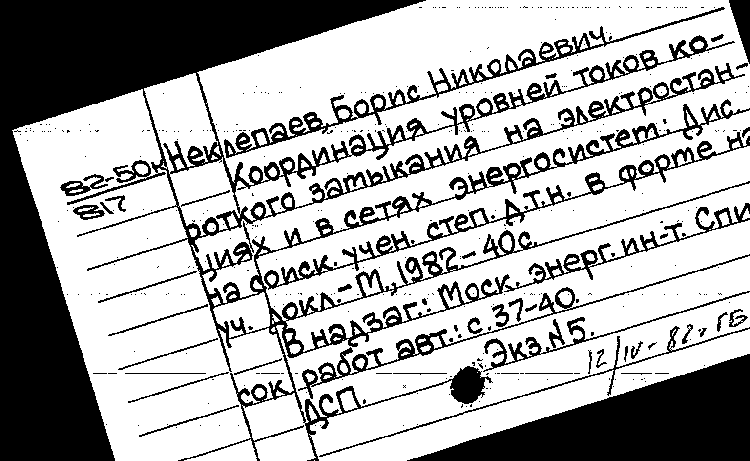 82-50к
817
Неклепаев, Борис Николаевич.
Координация уровней токов ко-
роткого замыкания на электростан-
циях и в сетях энергосистем: Дис...
на соиск. учен. степ. д.т.н. в форме на
уч. докл. - М., 1982. - 40с.
В надзаг.: Моск. энерг. ин-т. Спи
сок работ авт.: с. 37-40.
Экз. №5.
ДСП.
12/IV - 82г. ГБ